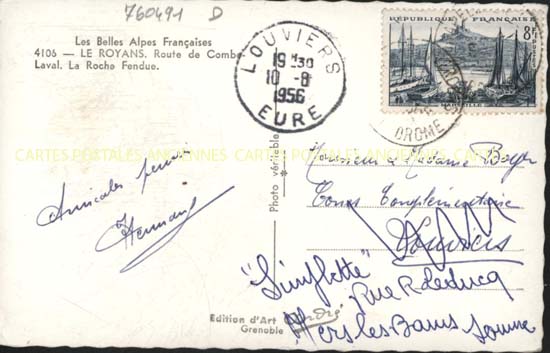 760491 D
Les Belles Alpes Françaises
4106 — LE ROYANS. Route de Combe
Laval. La Roche Fendue.
LOUVIERS
19 H30
10 - 8
1956
EURE
RÉPUBLIQUE FRANÇAISE
8F
POSTES
MARSEILLE
DROME
CARTES POSTALES ANCIENNES CARTES POSTALES ANCIENNES CARTES POSTALES ANCIENNES
Amicales pensées
Hermant
Photo véritable
Monsieur & Madame Boyer
Cours Complémentaire
Louviers
"Simflette"
Rue R Leducq
Mers les Bains Somme
Edition d'Art André
Grenoble